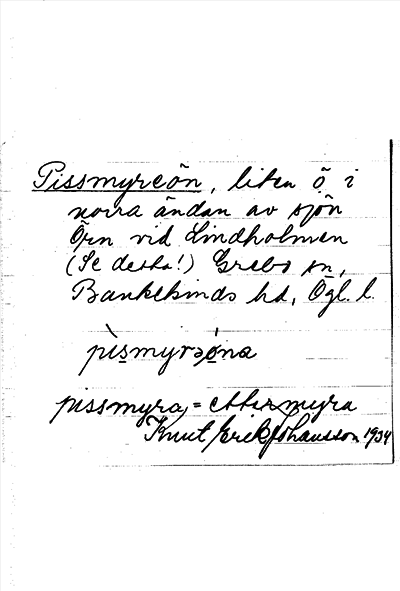 Pissmyreön, liten ö i
norra ändan av sjön
Örn vid Lindholmen
(Se detta!) Grebo sn,
Bankekinds hd, Ögl. l.
pìsmyrəǿna
pissmyra = ettermyra
Knut Erik Johansson 1934